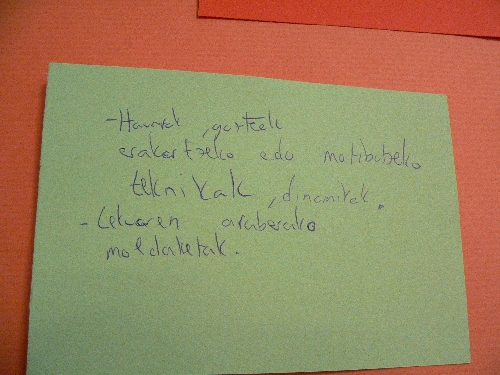 - Haurrak, gazteak
erakartzeko edo motibatzeko
teknikak, dinamikak.
- Lekuaren araberako
moldaketak.